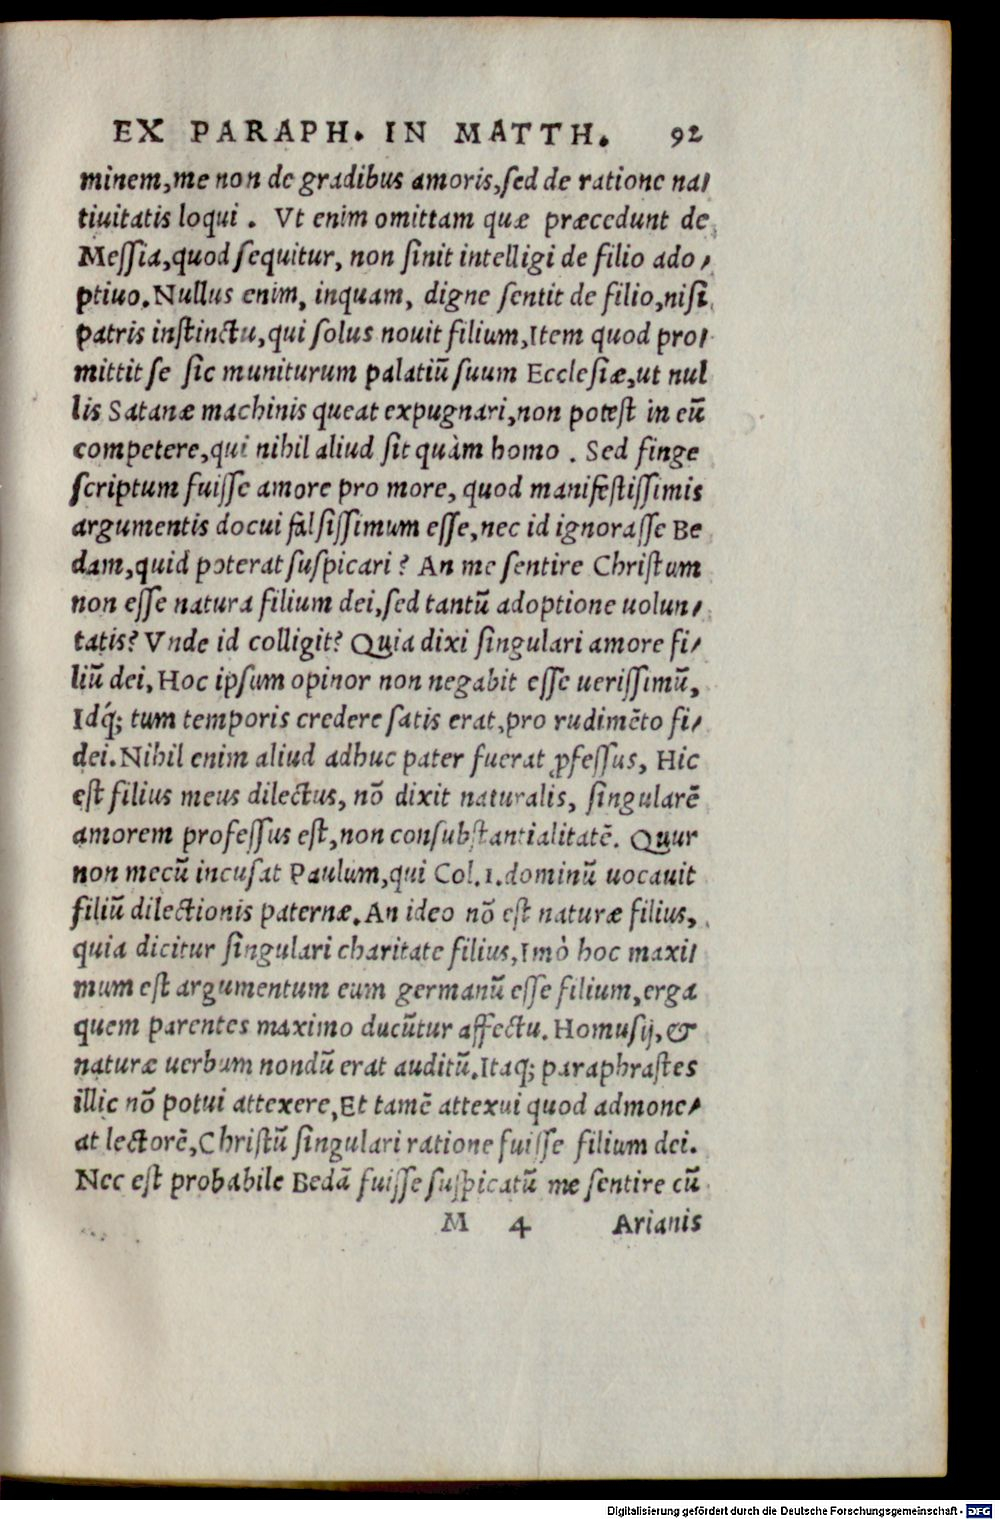 EX PARAPH. IN MATTH. 92
minem, me non de gradibus amoris, ſed de ratione na⸗
tiuitatis loqui. Vt enim omittam quæ præcedunt de
Meſſia, quod ſequitur, non ſinit intelligi de filio ado⸗
ptiuo. Nullus enim, inquam, digne ſentit de filio, niſi
patris inſtinctu, qui ſolus nouit filium, Item quod pro⸗
mittit ſe ſic muniturum palatiũ ſuum Eccleſiæ, ut nul
lis Satanæ machinis queat expugnari, non poteſt in eũ
competere, qui nihil aliud ſit quàm homo. Sed finge
ſcriptum fuiſſe amore pro more, quod manifeſtiſſimis
argumentis docui falſiſſimum eſſe, nec id ignoraſſe Be
dam, quid poterat ſuſpicari? An me ſentire Chriſtum
non eſſe natura filium dei, ſed tantũ adoptione uolun⸗
tatis? Vnde id colligit? Quia dixi ſingulari amore fi⸗
liũ dei, Hoc ipſum opinor non negabit eſſe ueriſſimũ,
Idq́; tum temporis credere ſatis erat, pro rudimẽto fi⸗
dei. Nihil enim aliud adhuc pater fuerat ꝓfeſſus, Hic
eſt filius meus dilectus, nõ dixit naturalis, ſingularẽ
amorem profeſſus eſt, non conſubſtantialitatẽ. Quur
non mecũ incuſat Paulum, qui Col. 1. dominũ uocauit
filiũ dilectionis paternæ. An ideo nõ eſt naturæ filius,
quia dicitur ſingulari charitate filius, Imò hoc maxi⸗
mum eſt argumentum eum germanũ eſſe filium, erga
quem parentes maximo ducũtur affectu. Homuſij, &
naturæ uerbum nondũ erat auditũ. Itaq; paraphraſtes
illic nõ potui attexere, Et tamẽ attexui quod admone⸗
at lectorẽ, Chriſtũ ſingulari ratione fuiſſe filium dei.
Nec eſt probabile Bedã fuiſſe ſuſpicatũ me ſentire cũ
M 4 Arianis
Digitalisierung gefördert durch die Deutsche Forschungsgemeinschaft - DFG